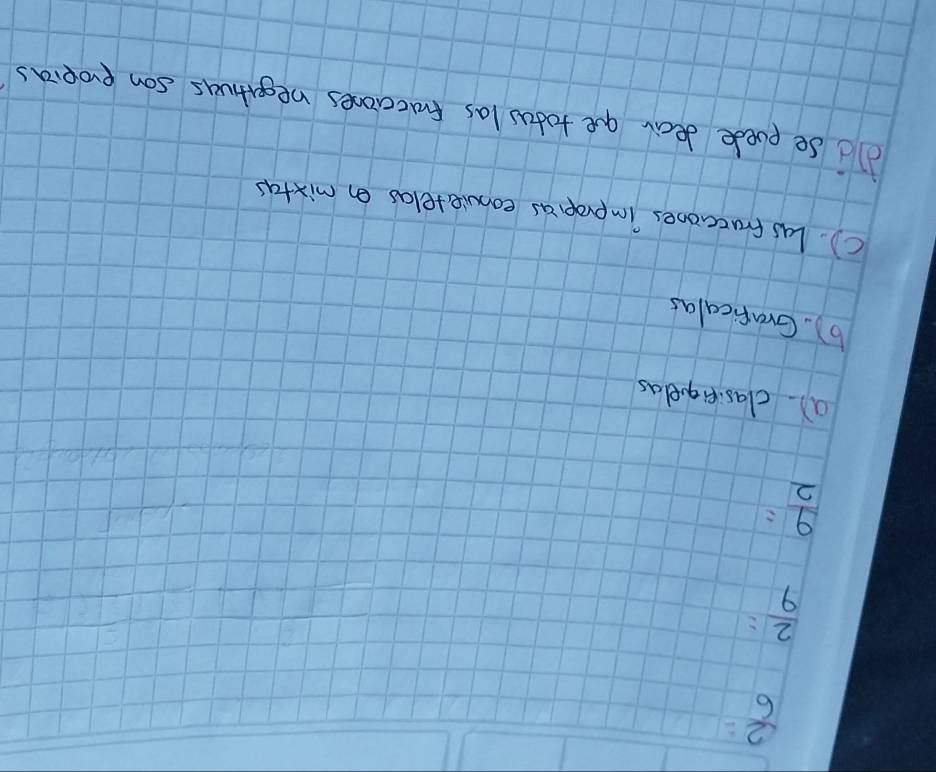 2/6 =
2/9 =
9/2 =
a).- clasifiquelas
b).- Graficalas
c).- Las fracciones impropias conviertelas en mixtas
d) ¿ Se puede decir que todas las fracciones negativas son propias